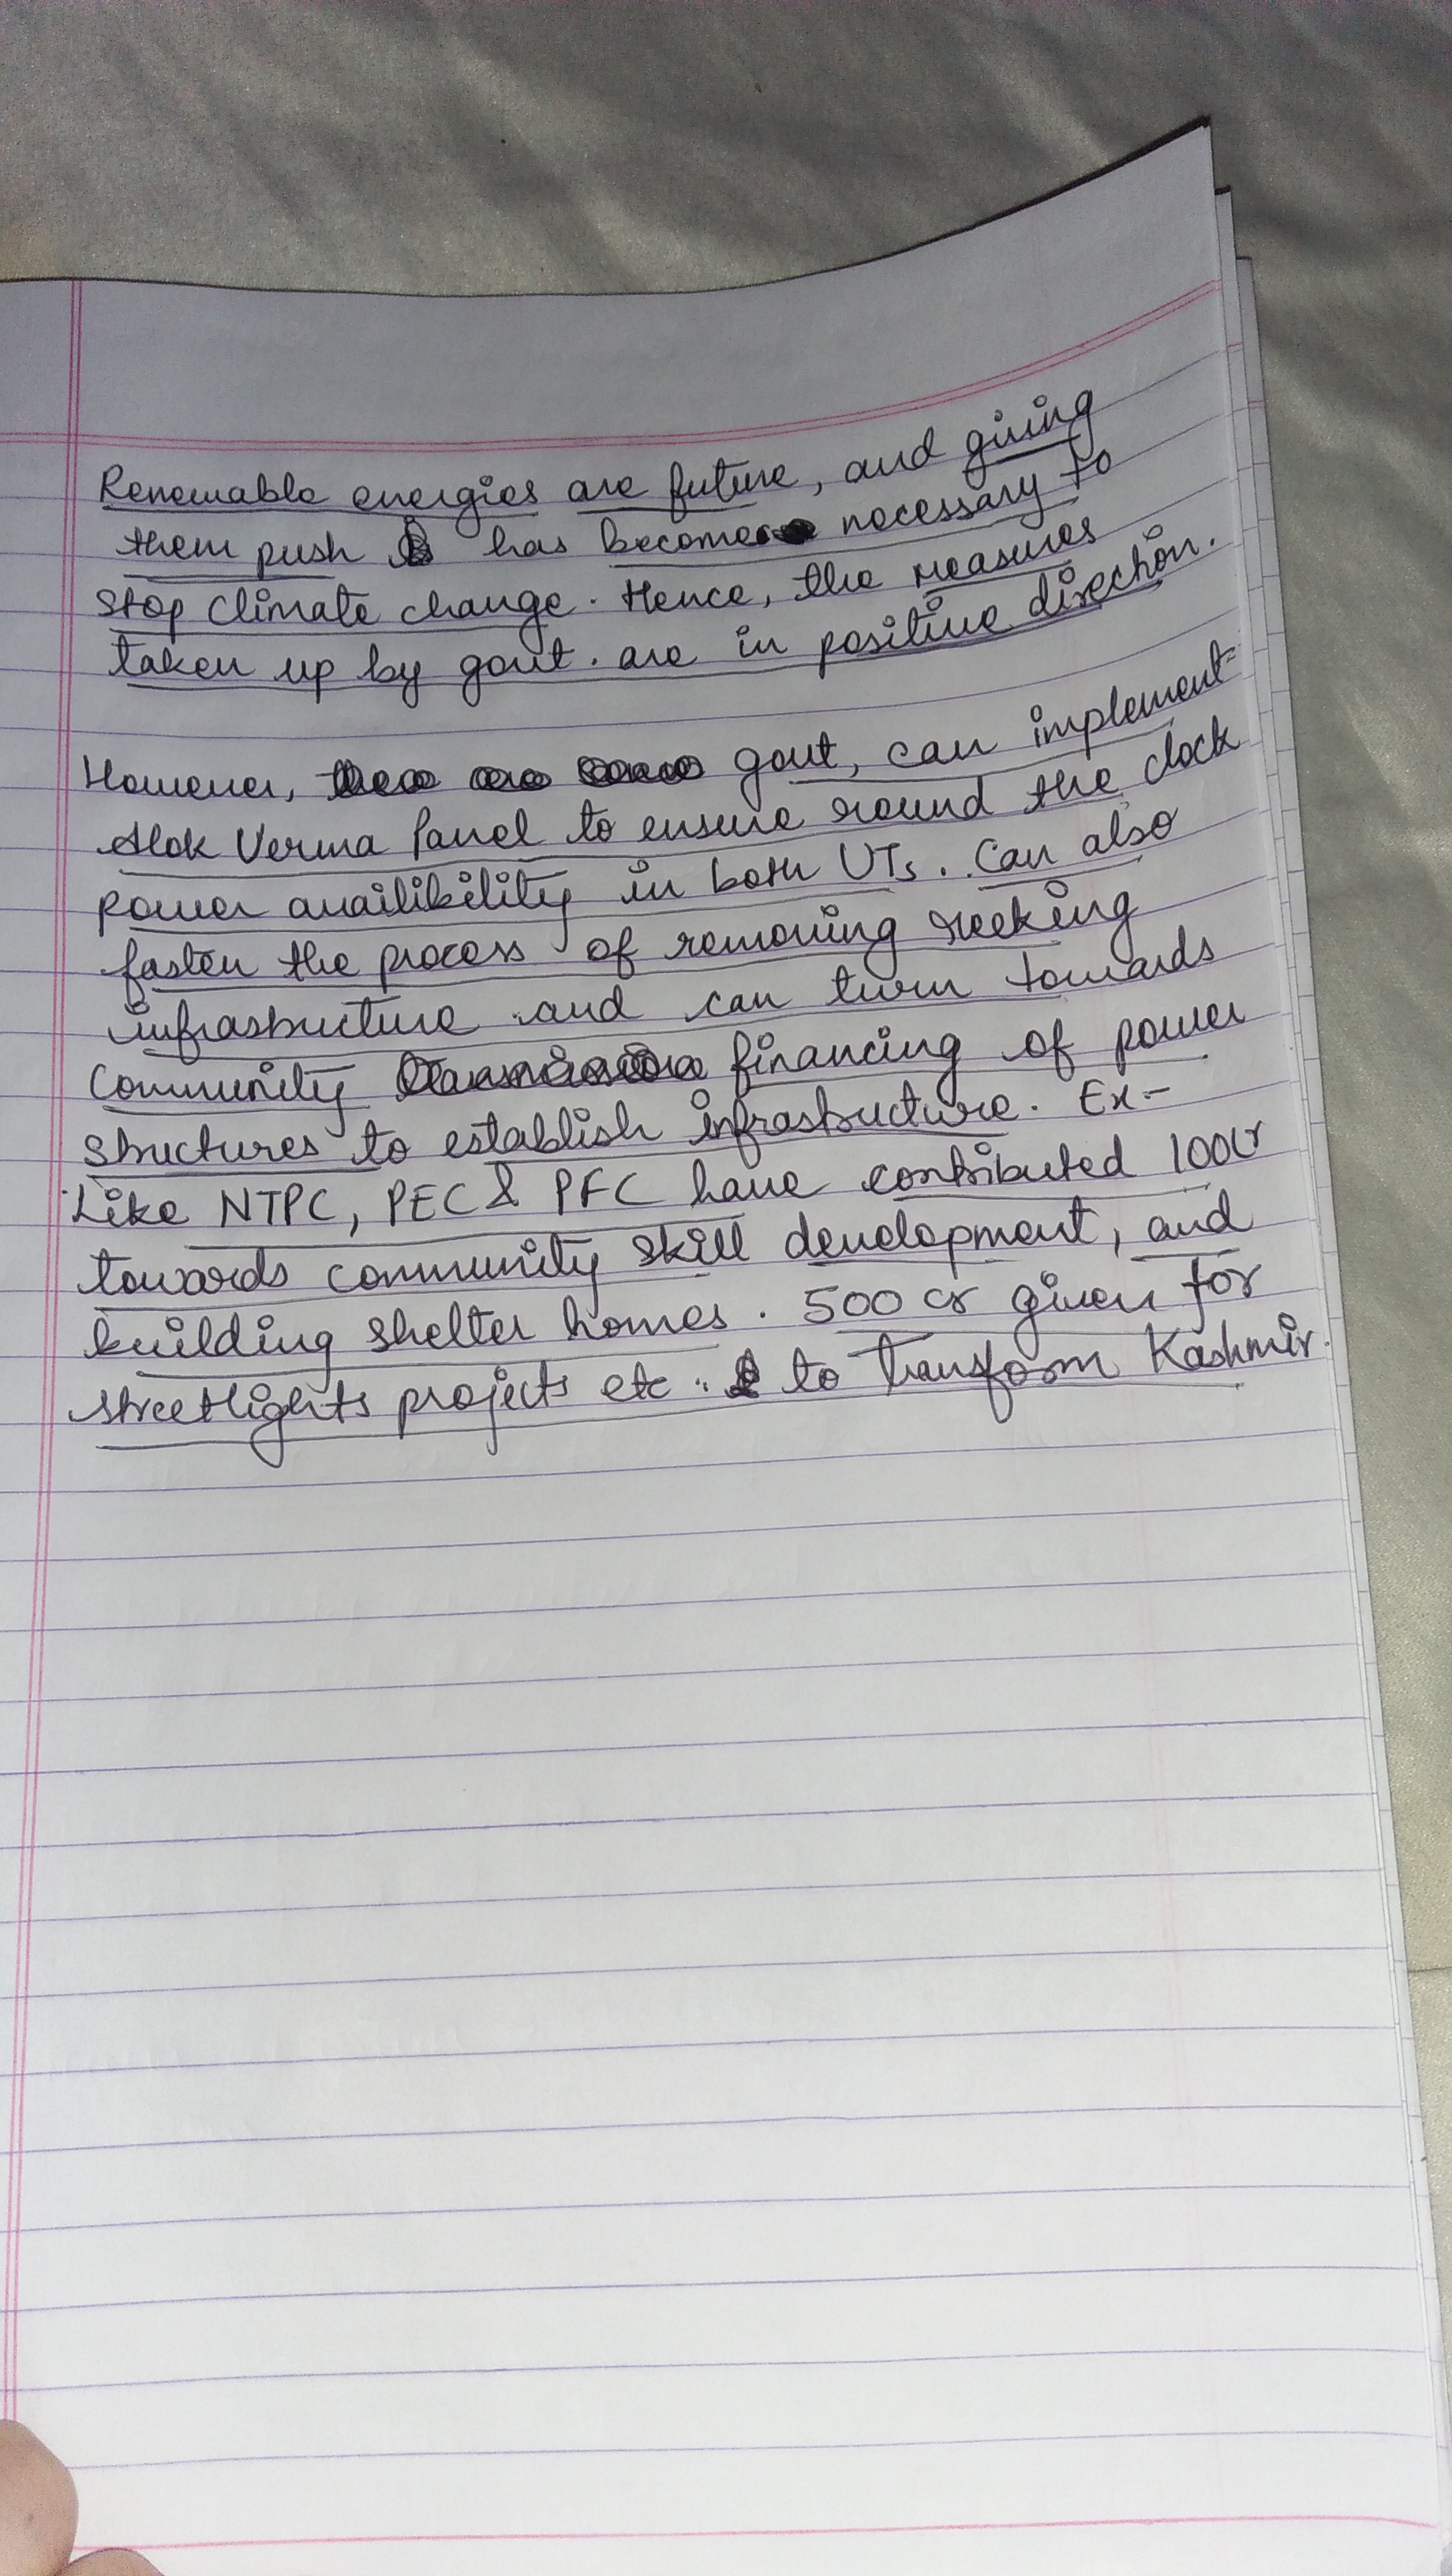 Renewable energies are future, and giving
them push has become necessary to
stop climate change. Hence, the measures
taken up by govt. are in positive direction.
However, govt, can implement
Alok Verma Panel to ensure round the clock
power availibility in both UTs. Can also
fasten the process of removing reeking
infrastructure and can turn towards
community financing of power
structures to establish infrastructure. Ex-
Like NTPC, PEC & PFC have contributed 100cr
towards community skill development, and
building shelter homes. 500 cr given for
streetlights projects etc. to transform Kashmir.